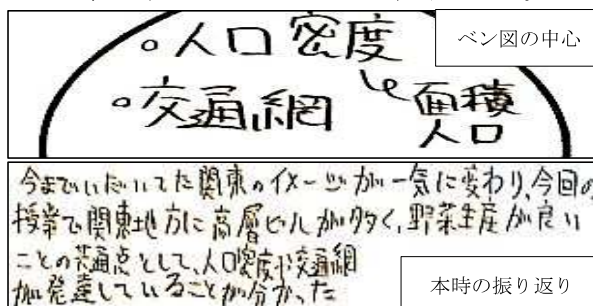 ベン図の中心
○人口密度
↳面積
人口
○交通網
今までいだいてた関東のイメージが一気に変わり、今回の
授業で関東地方に高層ビルが多く、野菜生産が良い
ことの共通点として、人口密度や交通網
が発達していることが分かった
本時の振り返り